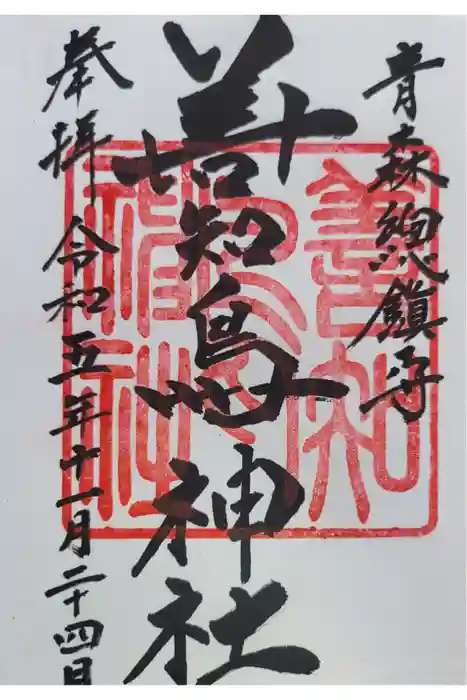 青森総鎮守
善知鳥神社
奉拝 令和五年十一月二十四日
善知鳥神社